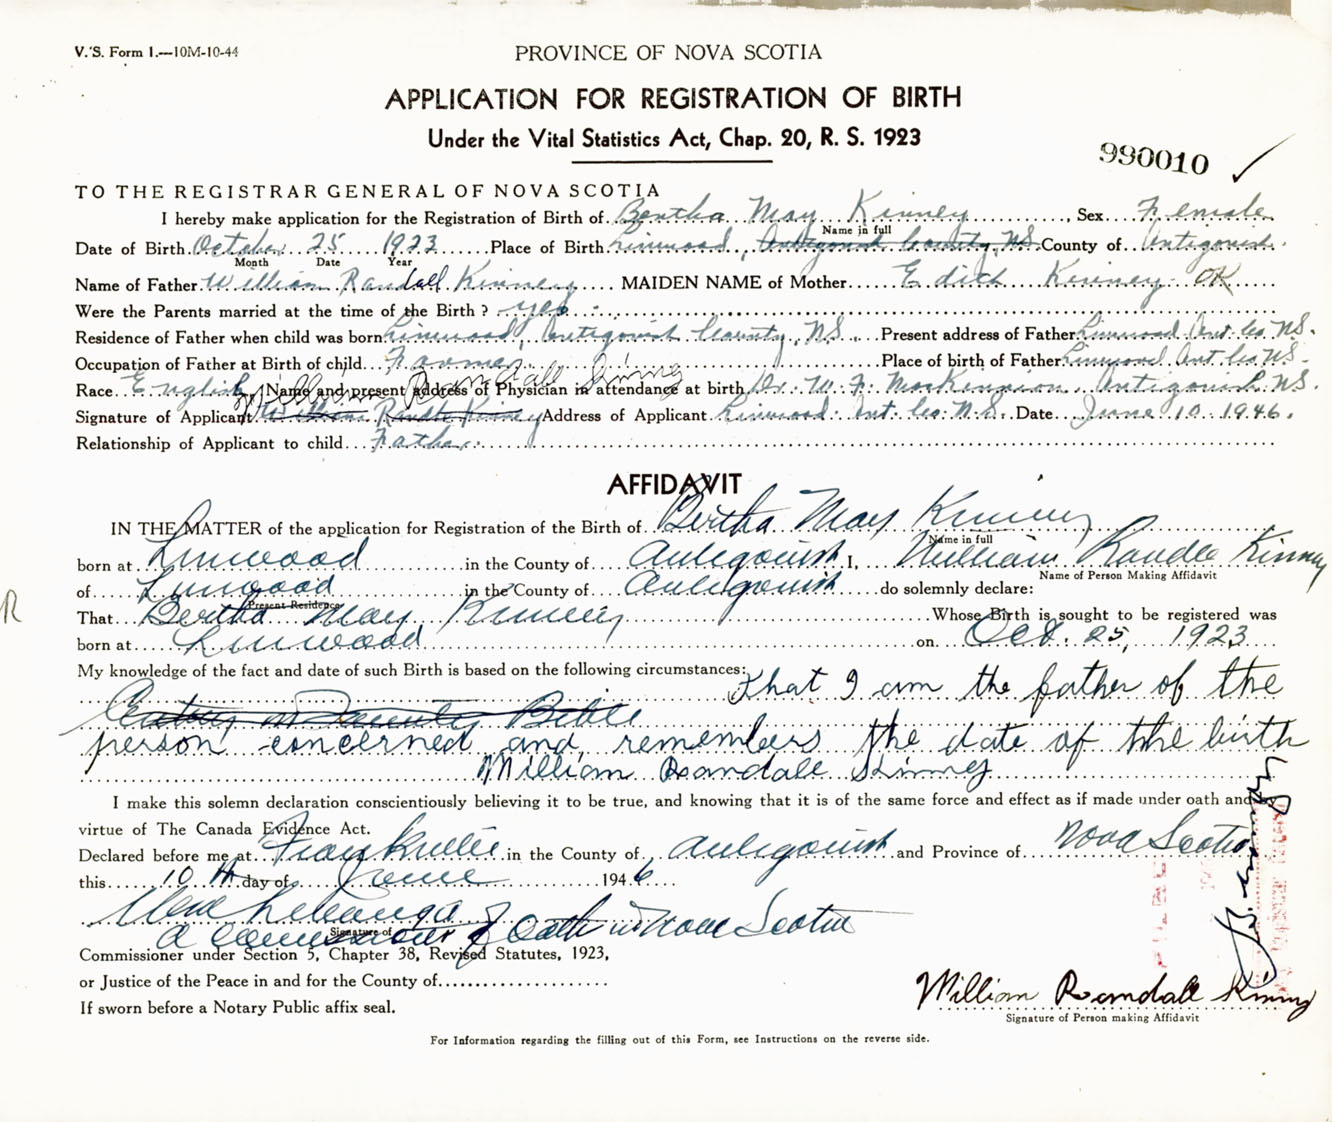 V.S. Form 1.—10M-10-44
PROVINCE OF NOVA SCOTIA
APPLICATION FOR REGISTRATION OF BIRTH
Under the Vital Statistics Act, Chap. 20, R. S. 1923
990010 ✓
TO THE REGISTRAR GENERAL OF NOVA SCOTIA
I hereby make application for the Registration of Birth of Bertha May Kinney, Sex Female
Name in full
Date of Birth October 25 1923 Place of Birth Linwood, Antigonish County, N.S. County of Antigonish
Month Date Year
Name of Father William Randall Kinney MAIDEN NAME of Mother Edith Kinney OK
Were the Parents married at the time of the Birth? yes
Residence of Father when child was born Linwood, Antigonish County, NS Present address of Father Linwood Ant. Co. N.S.
Occupation of Father at Birth of child Farmer Place of birth of Father Linwood Ant. Co. N.S.
Race English Name and present address of Physician in attendance at birth Dr. W. F. MacKinnon, Antigonish N.S.
William Randall Kinney
Signature of Applicant William Randle Kinney Address of Applicant Linwood Ant. Co. N.S. Date June 10 1946.
Relationship of Applicant to child Father
AFFIDAVIT
IN THE MATTER of the application for Registration of the Birth of Bertha May Kinney
Name in full
born at Linwood in the County of Antigonish I, William Randle Kinney
Name of Person Making Affidavit
of Linwood in the County of Antigonish do solemnly declare:
Present Residence
That Bertha May Kinney Whose Birth is sought to be registered was
born at Linwood on Oct. 25, 1923
My knowledge of the fact and date of such Birth is based on the following circumstances:
That I am the father of the
Entry in Family Bible
person concerned and remembers the date of the birth
William Randall Kinney
I make this solemn declaration conscientiously believing it to be true, and knowing that it is of the same force and effect as if made under oath and by
virtue of The Canada Evidence Act.
Declared before me at in the County of Antigonish and Province of Nova Scotia
this 10th day of June 1946
Signature of
A Commissioner of Oath in Nova Scotia
Commissioner under Section 5, Chapter 38, Revised Statutes, 1923,
or Justice of the Peace in and for the County of
If sworn before a Notary Public affix seal.
William Randall Kinney
Signature of Person making Affidavit
For Information regarding the filling out of this Form, see Instructions on the reverse side.
R